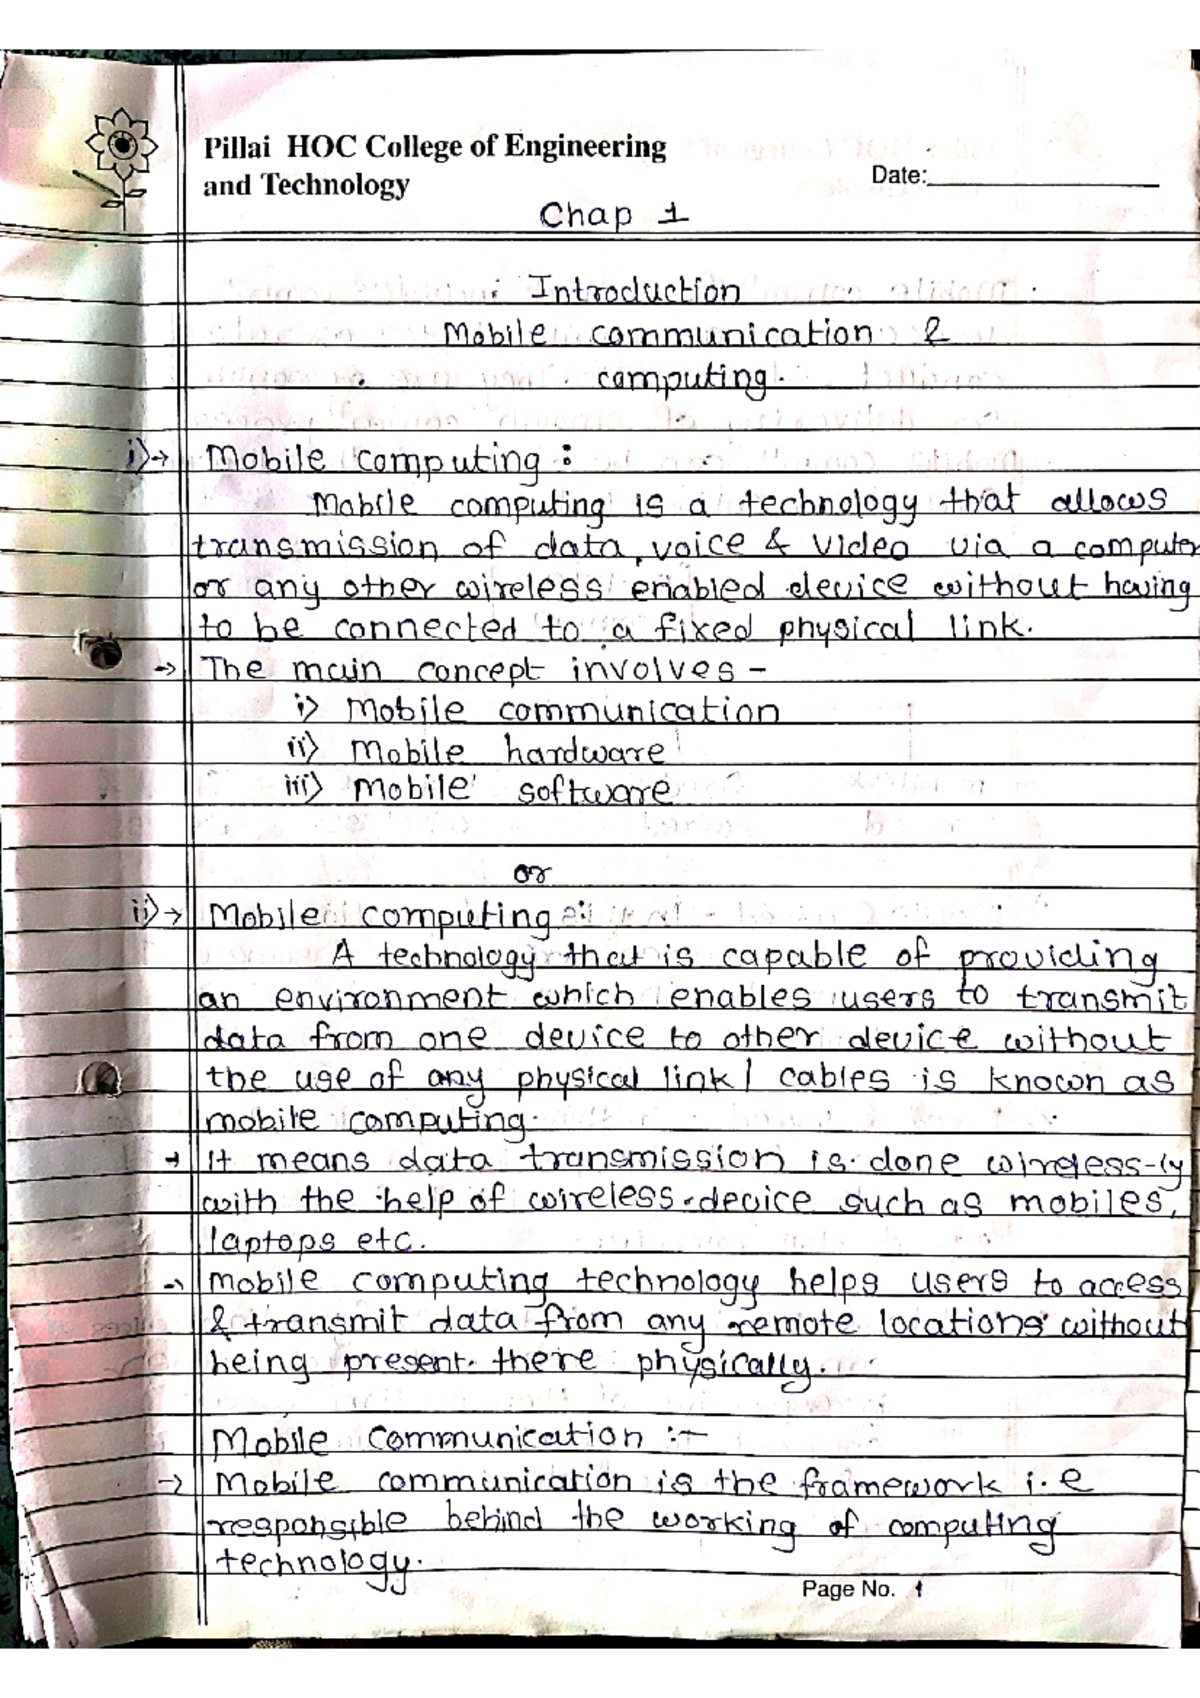 Pillai HOC College of Engineering
and Technology
Date:
Chap 1
Introduction
Mobile communication &
computing.
i)→ Mobile computing :
Mobile computing is a technology that allows
transmission of data, voice & video via a computer
or any other wireless enabled device without having
to be connected to a fixed physical link.
→ The main concept involves -
i) Mobile communication
ii) Mobile hardware
iii) Mobile software
or
ii)→ Mobile computing :
A technology that is capable of providing
an environment which enables users to transmit
data from one device to other device without
the use of any physical link / cables is known as
mobile computing.
→ It means data transmission is done wireless-ly
with the help of wireless device such as mobiles,
laptops etc.
→ Mobile computing technology helps users to access
& transmit data from any remote locations without
being present there physically.
Mobile Communication :-
→ Mobile communication is the framework i.e
responsible behind the working of computing
technology.
Page No. 1